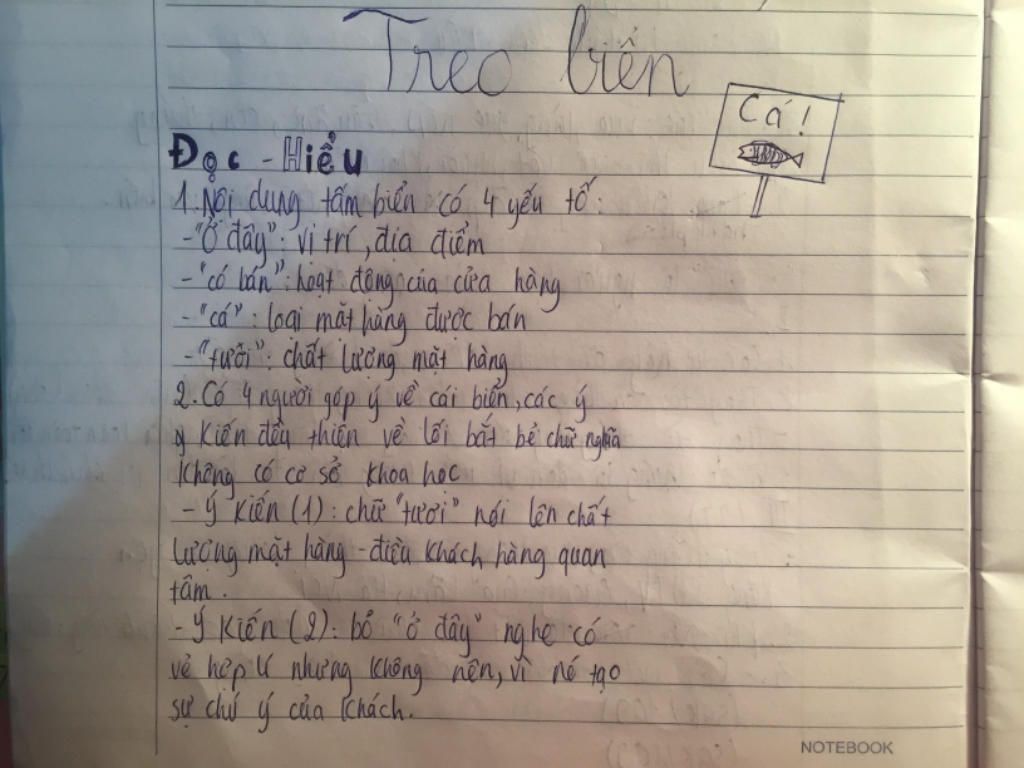 Treo biển
Cá!
Đọc - Hiểu
1. Nội dung tấm biển có 4 yếu tố:
-"Ở đây": vị trí, địa điểm
- "có bán": hoạt động của cửa hàng
- "cá": loại mặt hàng được bán
- "tươi": chất lượng mặt hàng
2. Có 4 người góp ý về cái biển, các ý
ý kiến đều thiên về lối bắt bẻ chữ nghĩa
không có cơ sở khoa học
- Ý kiến (1): chữ "tươi" nói lên chất
lượng mặt hàng - điều khách hàng quan
tâm.
- Ý kiến (2): bỏ "ở đây" nghe có
vẻ hợp lí nhưng không nên, vì nó tạo
sự chú ý của khách.
NOTEBOOK